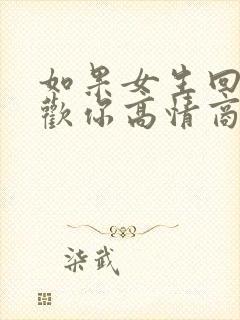 如果女生回
歡你高情商
柒武